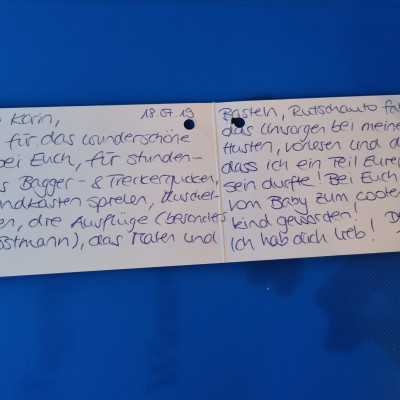 Karin, 18.07.19
für das wunderschöne
bei Euch, für stunden-
Bagger- & Treckergucken,
ndkasten spielen, Kuschel-
en, die Ausflüge (besonders
stmann), das Malen und
Basteln, Rutschauto fa
das Umsorgen bei meine
Husten, vorlesen und d
dass ich ein Teil Eurer
sein durfte! Bei Euch
vom Baby zum coolen
kind geworden!
Ich hab dich lieb! D